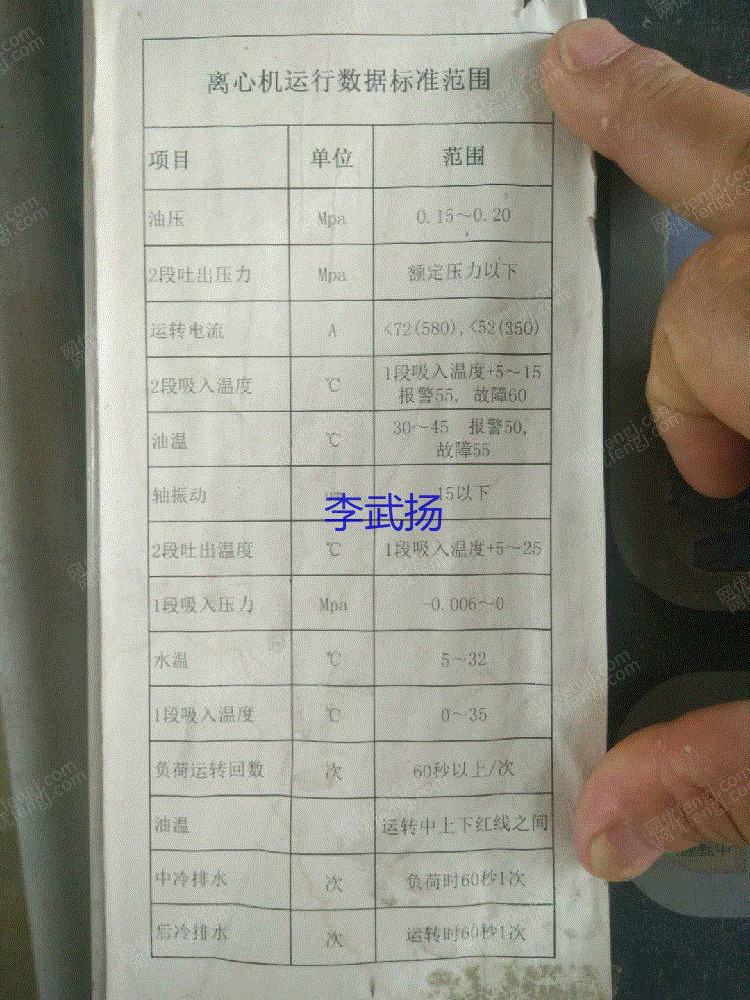 离心机运行数据标准范围
项目 单位 范围
油压 Mpa 0.15~0.20
2段吐出压力 Mpa 额定压力以下
运转电流 A <72(580),<52(350)
2段吸入温度 ℃ 1段吸入温度+5~15
报警55, 故障60
油温 ℃ 30~45 报警50,
故障55
轴振动 15以下
李武扬
2段吐出温度 ℃ 1段吸入温度+5~25
1段吸入压力 Mpa -0.006~0
水温 ℃ 5~32
1段吸入温度 ℃ 0~35
负荷运转回数 次 60秒以上/次
油温 运转中上下红线之间
中冷排水 次 负荷时60秒1次
后冷排水 次 运转时60秒1次